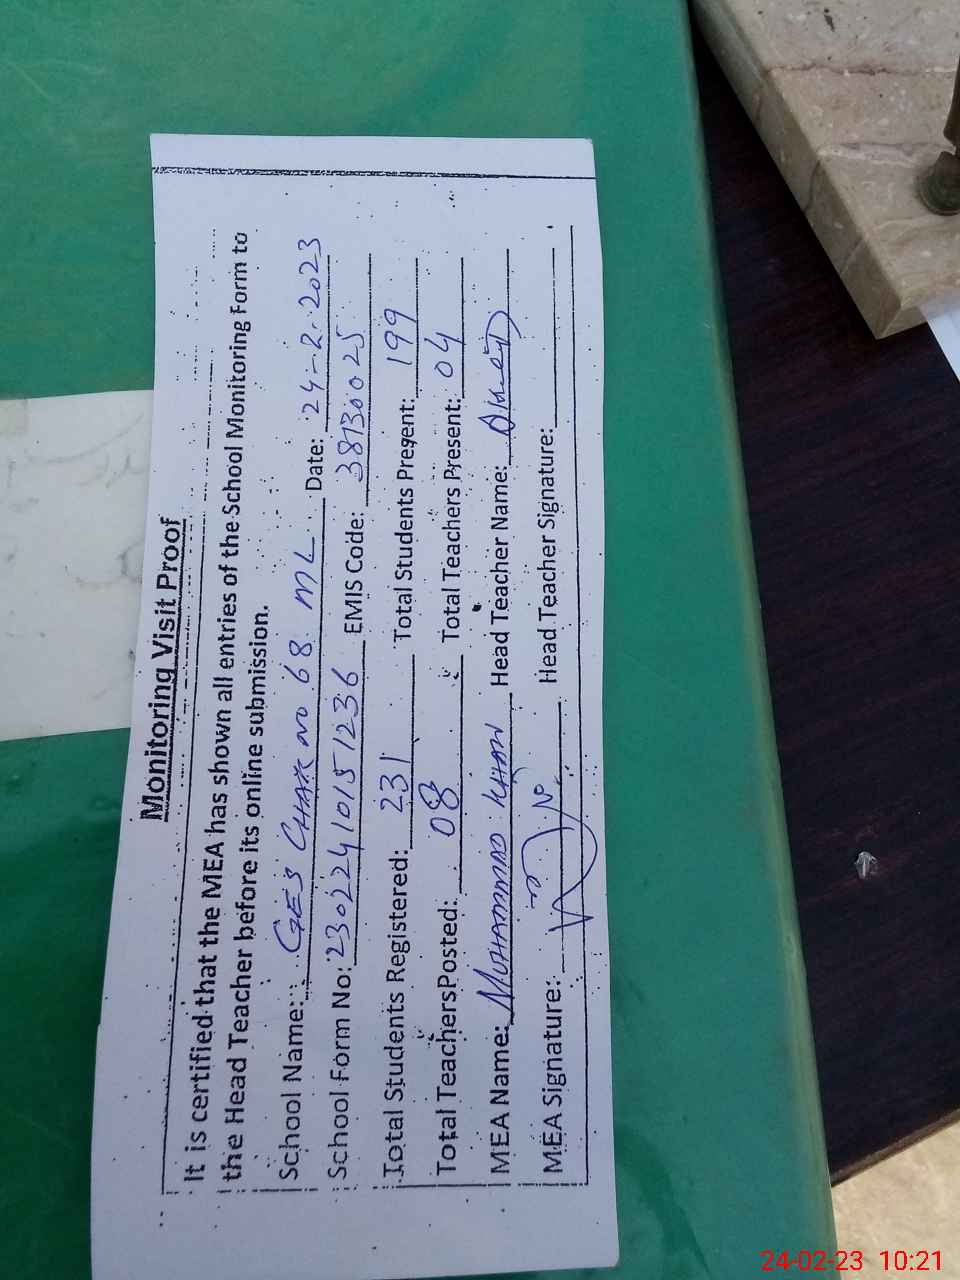 Monitoring Visit Proof
It is certified that the MEA has shown all entries of the School Monitoring Form to
the Head Teacher before its online submission.
School Name: GES CHAK NO 68 ML Date: 24-2-2023
School Form No: 23022410151236 EMIS Code: 38130025
Total Students Registered: 231 Total Students Present: 199
Total TeachersPosted: 08 Total Teachers Present: 04
MEA Name: MUHAMMAD KHAN Head Teacher Name:
MEA Signature: Head Teacher Signature:
24-02-23 10:21